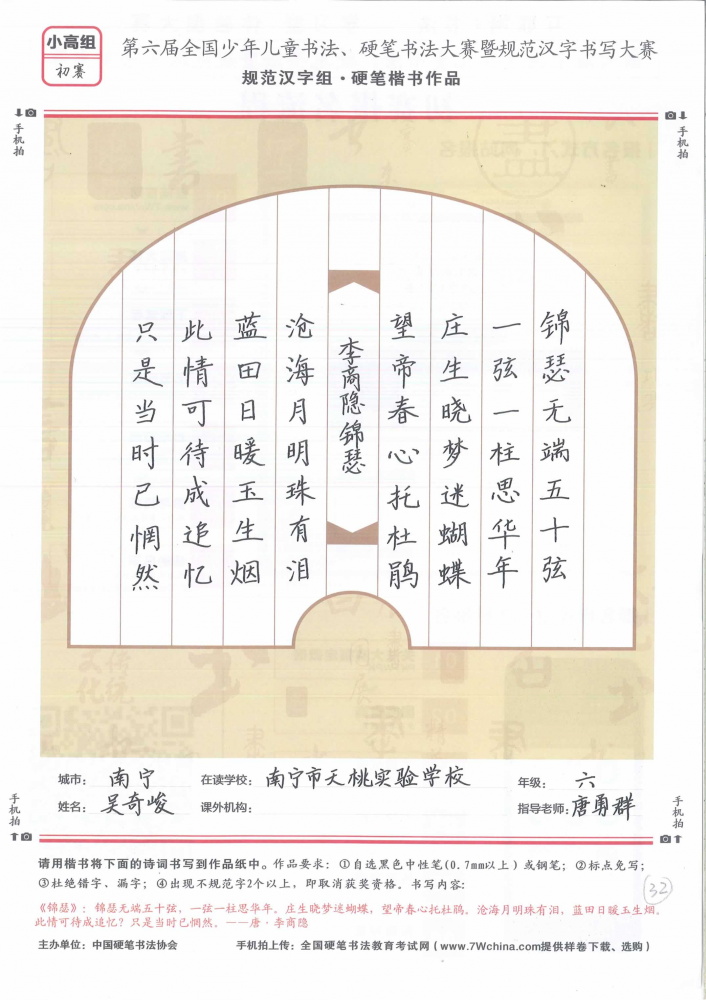 小高组
初赛
第六届全国少年儿童书法、硬笔书法大赛暨规范汉字书写大赛
规范汉字组·硬笔楷书作品
手机拍
手机拍
锦瑟无端五十弦
一弦一柱思华年
庄生晓梦迷蝴蝶
望帝春心托杜鹃
李商隐锦瑟
沧海月明珠有泪
蓝田日暖玉生烟
此情可待成追忆
只是当时已惘然
城市：南宁
在读学校：南宁市天桃实验学校
年级：六
姓名：吴奇峻
课外机构：
指导老师：唐勇群
手机拍
手机拍
请用楷书将下面的诗词书写到作品纸中。作品要求：①自选黑色中性笔(0.7mm以上)或钢笔；②标点免写；
③杜绝错字、漏字；④出现不规范字2个以上，即取消获奖资格。书写内容：
32
《锦瑟》：锦瑟无端五十弦，一弦一柱思华年。庄生晓梦迷蝴蝶，望帝春心托杜鹃。沧海月明珠有泪，蓝田日暖玉生烟。
此情可待成追忆？只是当时已惘然。——唐·李商隐
主办单位：中国硬笔书法协会
手机拍上传：全国硬笔书法教育考试网（www.7Wchina.com提供样卷下载、选购）